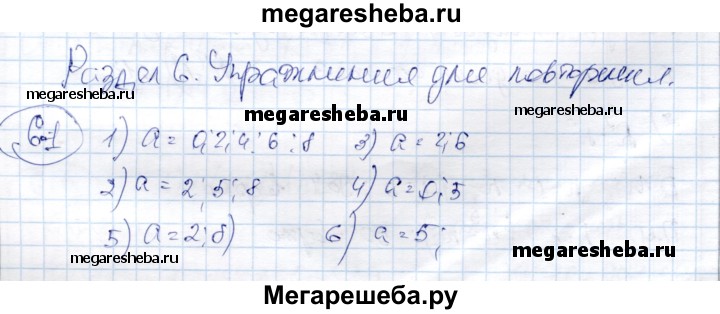 megaresheba.ru
Раздел 6. Упражнения для повторения.
megaresheba.ru megaresheba.ru megaresheba.ru
6.1 1) a = 0; 2; 4; 6; 8 3) a = 2; 6
2) a = 2; 5; 8 4) a = 0; 5
5) a = 2; 8) 6) a = 5;
megaresheba.ru megaresheba.ru
Мегарешеба.ру